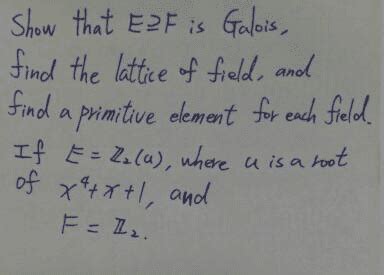 Show that E⊇F is Galois,
find the lattice of field, and
find a primitive element for each field.
If E = ℤ₂(u), where u is a root
of x⁴+x+1, and
F = ℤ₂.